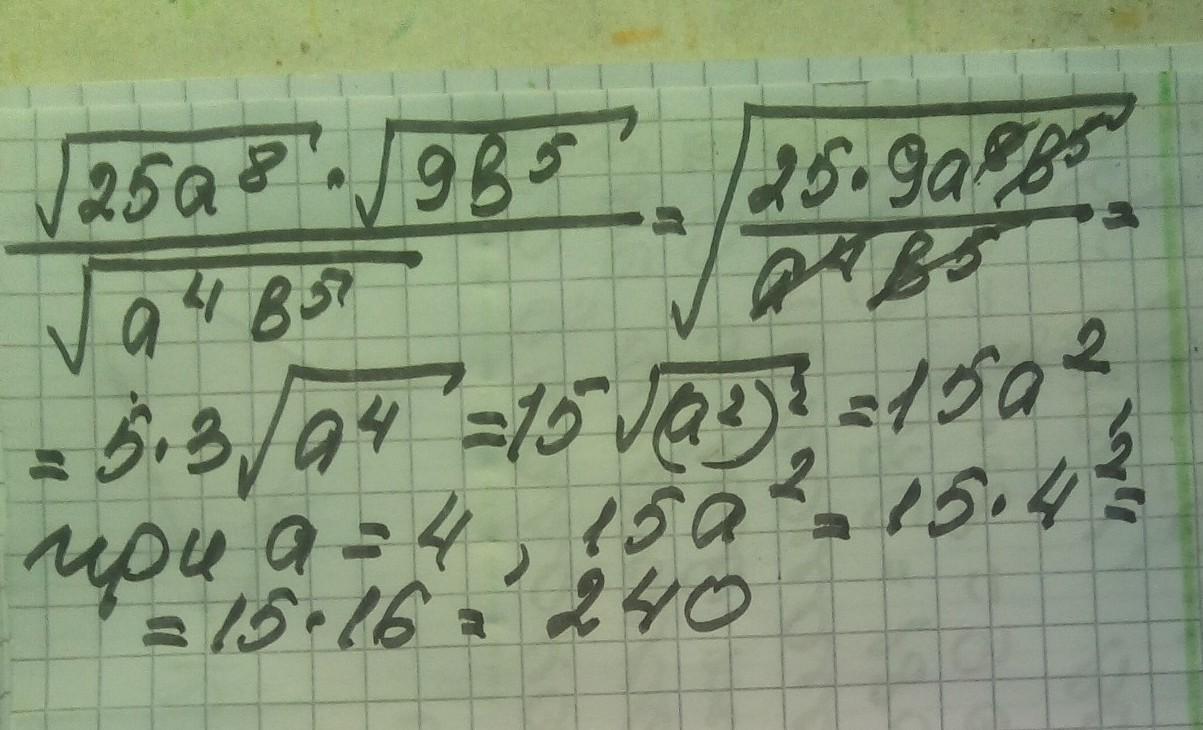 √25a⁸ · √9b⁵ / √a⁴b⁵ = √25·9a⁸b⁵ / a⁴b⁵ =
= 5·3√a⁴ = 15√(a²)² = 15a²,
при a = 4, 15a² = 15·4² =
= 15·16 = 240